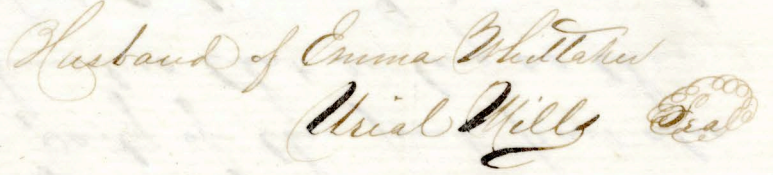 Husband of Emma Whittaker
Urial Mills Seal